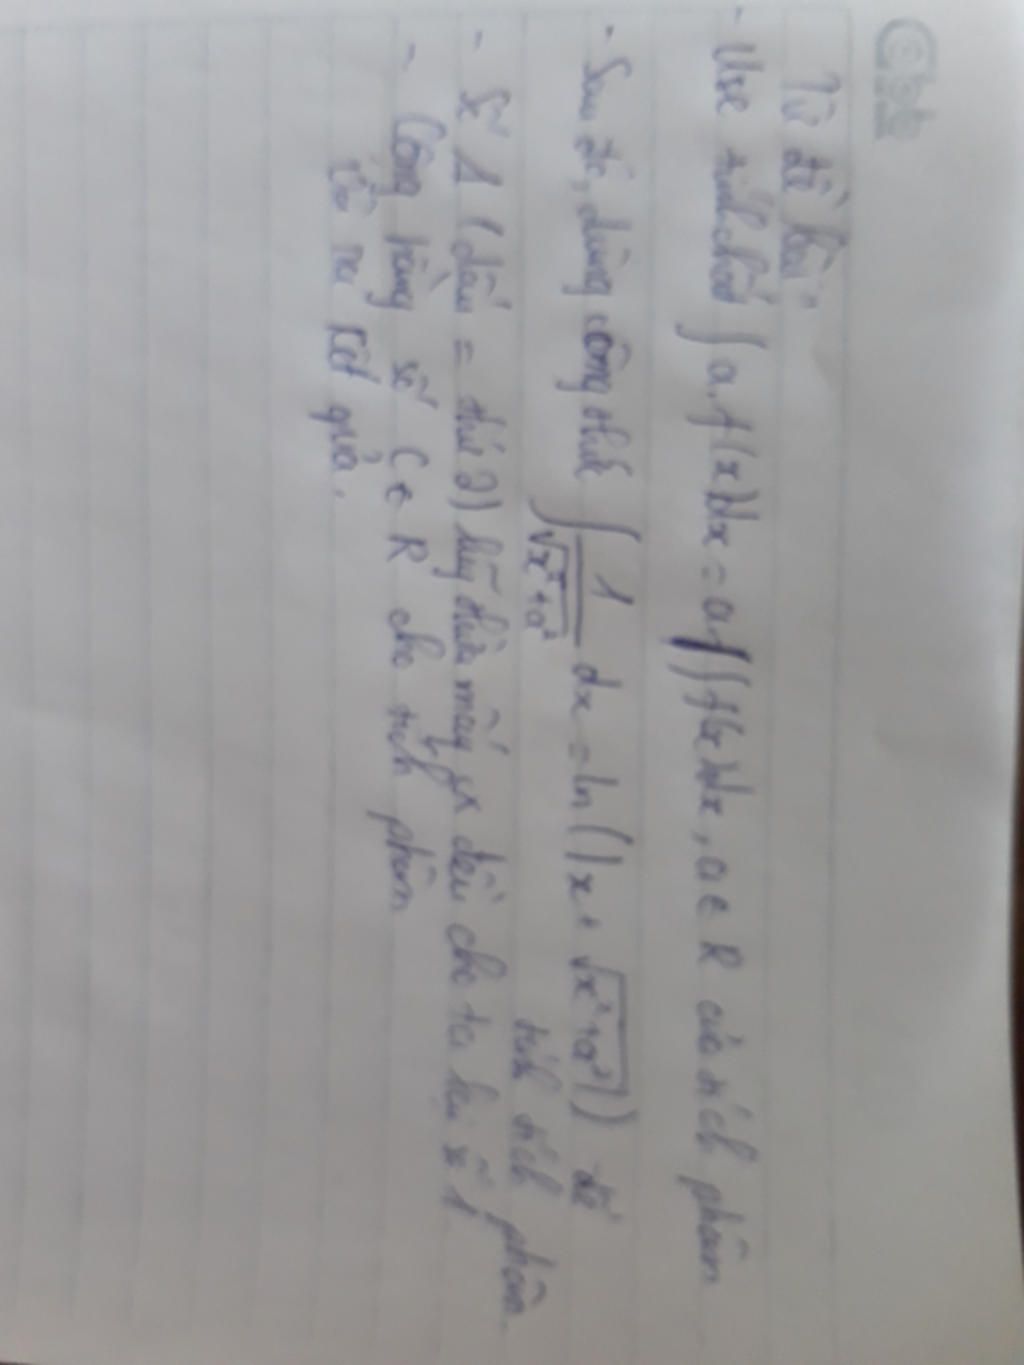 Từ đề bài:
- Use tính chất ∫ a.f(x)dx = a ∫ f(x)dx, a ∈ R của tích phân
- Sau đó, dùng công thức ∫ 1/√(x²+a²) dx = ln(|x + √(x²+a²)|) để
tính tích phân
- Số 1 (dấu = thứ 2) lũy thừa mấy đều cho ta lại số 1,
- Cộng hằng số C ∈ R cho tích phân
ta kết quả.